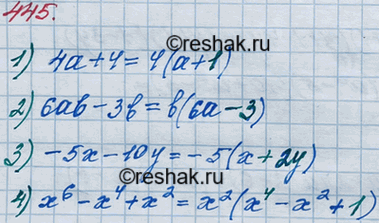 445.
©reshak.ru
1) 4a+4=4(a+1)
2) 6ab-3b=b(6a-3)
3) -5x-10y=-5(x+2y)
©reshak.ru
4) x⁶-x⁴+x²=x²(x⁴-x²+1)